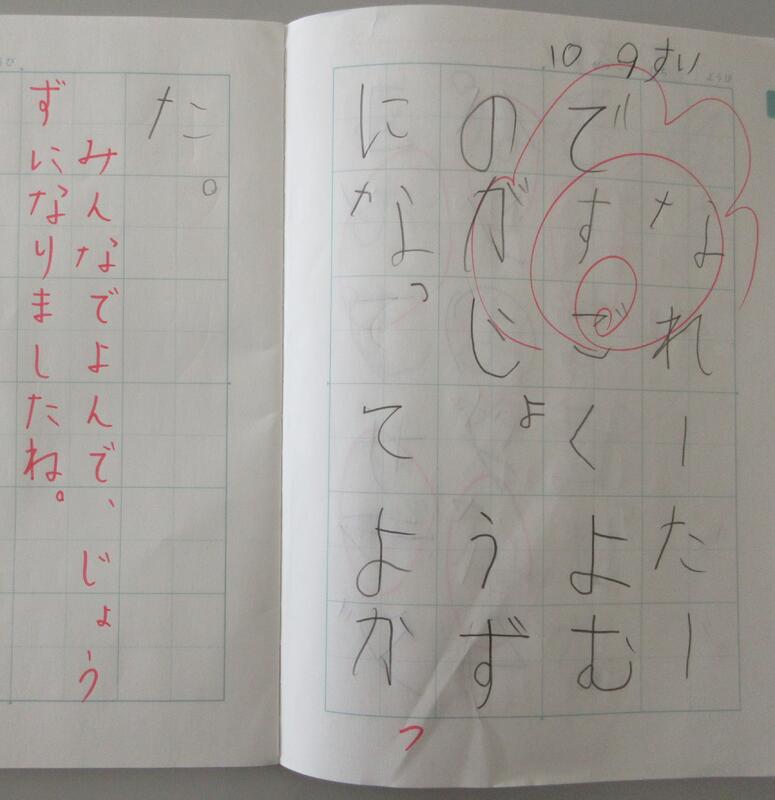 10 9 すい ようび
なれーたー
ですごくよむ
のがじょうず
になってよかっ
た。
みんなでよんで、じょう
ずになりましたね。